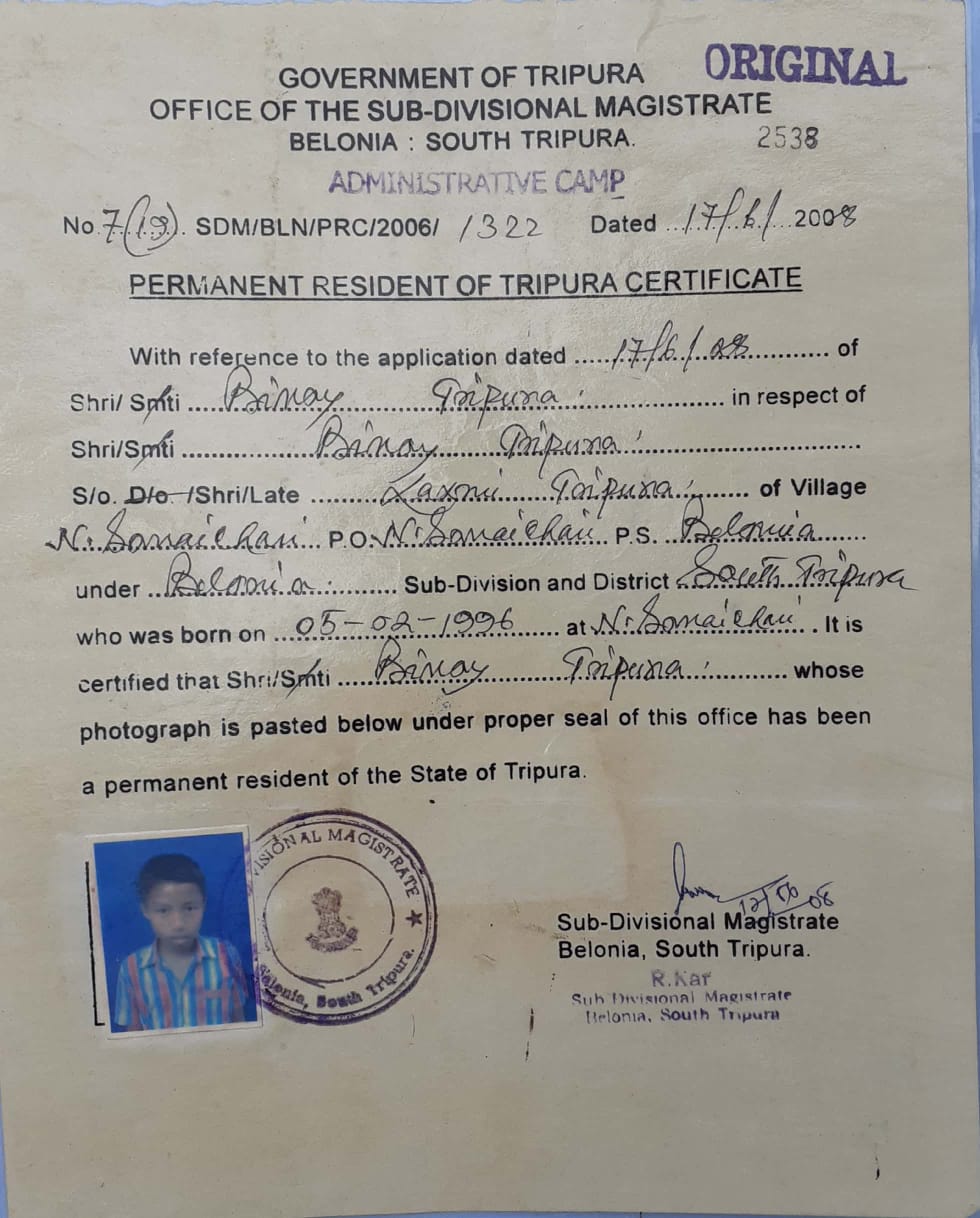 ORIGINAL
GOVERNMENT OF TRIPURA
OFFICE OF THE SUB-DIVISIONAL MAGISTRATE
BELONIA : SOUTH TRIPURA.
2538
ADMINISTRATIVE CAMP
No. 7(19). SDM/BLN/PRC/2006/ 1322 Dated 17/6/ 2008
PERMANENT RESIDENT OF TRIPURA CERTIFICATE
With reference to the application dated 17/6/08 of
Shri/ Smti Binay Tripura in respect of
Shri/Smti Binay Tripura
S/o. D/o /Shri/Late Laxmi Tripura of Village
N. Sonaichari P.O. N. Sonaichari P.S. Belonia
under Belonia Sub-Division and District South Tripura
who was born on 05-02-1996 at N. Sonaichari. It is
certified that Shri/Smti Binay Tripura whose
photograph is pasted below under proper seal of this office has been
a permanent resident of the State of Tripura.
VISIONAL MAGISTRATE
Belonia, South Tripura.
Sub-Divisional Magistrate
Belonia, South Tripura.
R.Kar
Sub Divisional Magistrate
Belonia, South Tripura